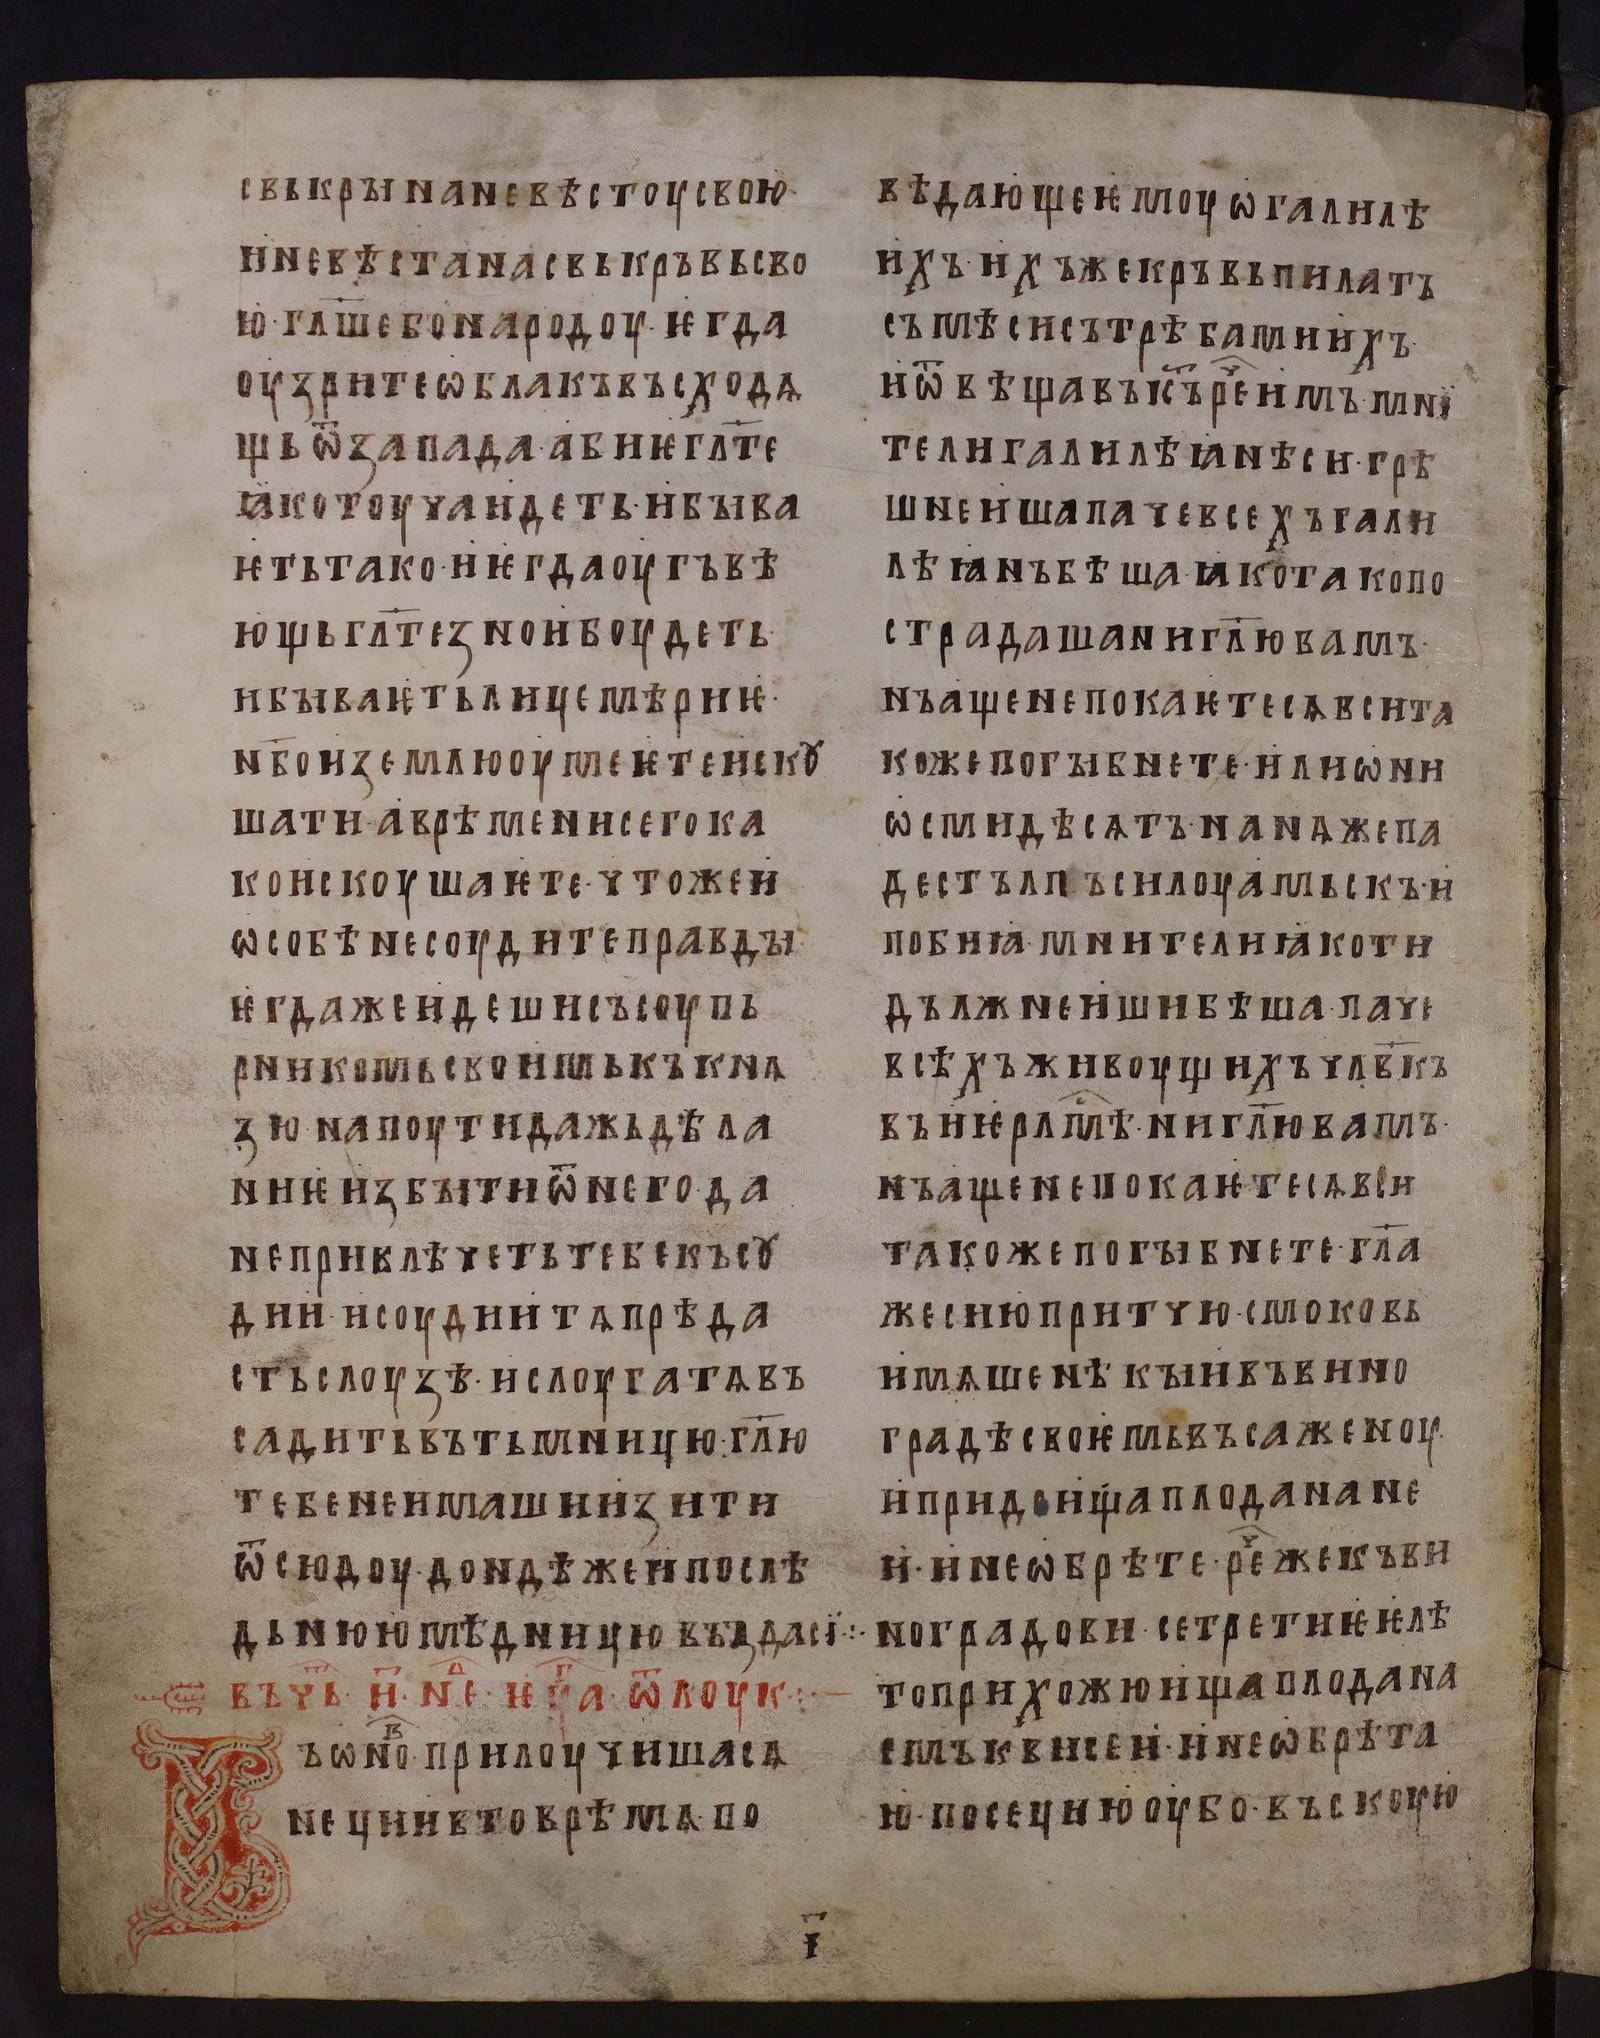 свькры на невѣстоу свою·
и невѣста на свькръвь сво
ю· гл҃ше бо народоу· ѥгда
оузрите ѡблакъ въсходѧ
щь ѿ запада· абиѥ гл҃те
ꙗко тоуча идеть· и быва
ѥть тако· и ѥгда оугъ вѣ
ющь гл҃те зной боудеть·
и бываѥть лицемѣриѥ·
нб҃о и землю оумеѥте искꙋ
шати· а врѣмени сего ка
ко искоушаѥте· что же и
ѡ собѣ не соудите правды·
ѥгда же идеши съ соупь
рникомь своимь къ кнѧ
зю· на поути дажь дѣла
ниѥ избыти ѿ него· да
не привлѣчеть тебе къ сꙋ
дии· и соудии тѧ прѣда
сть слоузѣ· и слоуга тѧ въ
садить въ тьмницю· гл҃ю
тебе не имаши изити
ѿсюдоу· дондѣже и послѣ
дьнюю мѣдницю въздасї·:·
въ чь҃· н҃· нⷣе· еѵⷢа· ѿ лоук·:—
Въ ѡно· прилоучишасѧ
неции в то врѣмѧ· по
вѣдающе ѥмоу ѡ галилѣ
ихъ· ихъже кръвь пилатъ
съмѣси съ трѣбами ихъ·
и ѿвѣщавъ іс҃ъ реⷱ имъ· мнї
те ли галилѣꙗне си· грѣ
шнейша паче всехъ гали
лѣꙗнъ бѣша· ꙗко тако по
страдаша· ни гл҃ю вамъ·
нъ аще не покаѥтесѧ вси та
коже погыбнете· или ѡни
ѡсмидѣсѧтъ· на нѧже па
де стълпъ силоуамьскъ· и
поби ꙗ· мните ли ꙗко ти
дължнейши бѣша· паче
всѣхъ живоущихъ чл҃вкъ
въ иѥрⷭлмѣ· ни гл҃ю вамъ·
нъ аще не покаѥтесѧ вси
такоже погыбнете· гл҃а
же сию притчю· смоковь
имѧше нѣкый въ вино
градѣ своѥмь въсаженоу·
и приде ища плода на не
й· и не ѡбрѣте· реⷱ же къ ви
ноградови· се третиѥ лѣ
то прихожю ища плода на
смъкви сей· и не ѡбрѣта
ю· посеци ю оубо· въскоую
і҃